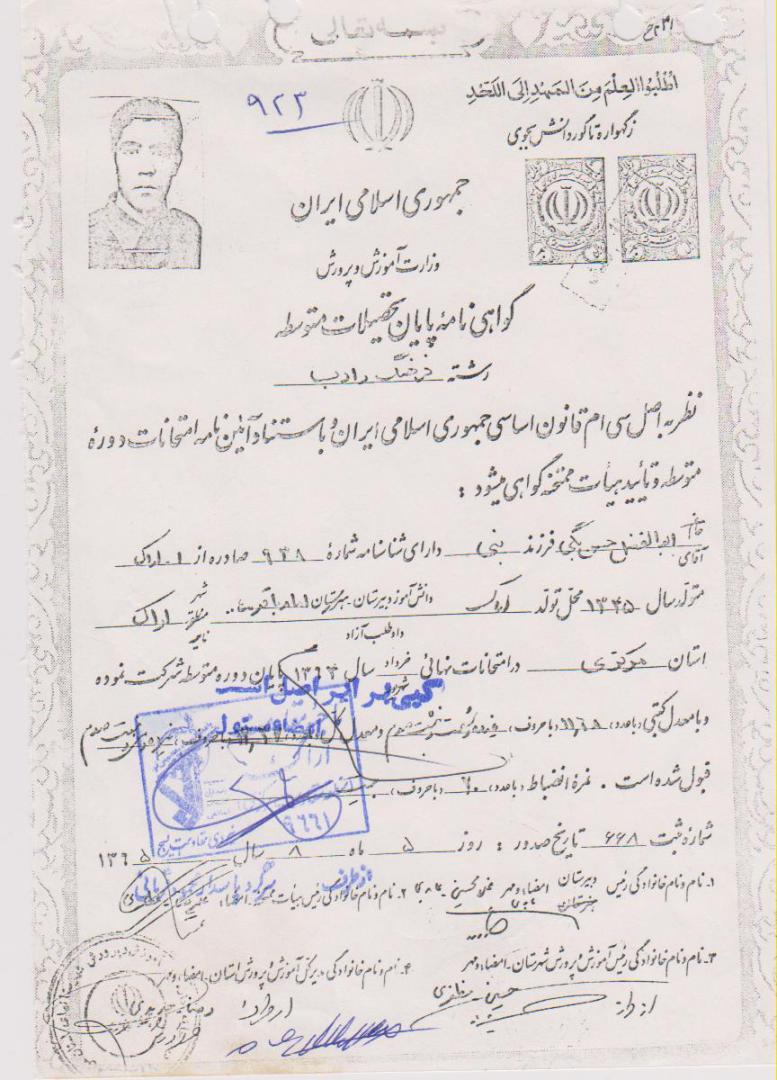 ۳۱ خ
بسمه تعالی
اُطْلُبُوا العِلْمَ مِنَ المَهْدِ اِلَی اللَّحَدِ
زگهواره تا گور دانش بجوی
۹۲۳
جمهوری اسلامی ایران
وزارت آموزش و پرورش
گواهی نامهٔ پایان تحصیلات متوسطه
رشته فرهنگ و ادب
نظر به اصل سی ام قانون اساسی جمهوری اسلامی ایران و با استناد آئین نامه امتحانات دورهٔ
متوسطه و تأیید هیأت ممتحنه گواهی میشود :
خانم آقای ابوالفضل حسن بیگی فرزند نبی دارای شناسنامه شمارهٔ ۹۳۸ صادره از اراک
متولد سال ۱۳۴۵ محل تولد اراک دانش آموز دبیرستان داوطلب آزاد شهر منطقه ناحیه اراک
استان مرکزی در امتحانات نهائی خرداد شهریور سال ۱۳۶۳ پایان دوره متوسطه شرکت نموده
کپی برابر اصل است
و با معدل کتبی (با عدد) ۱۱/۶۸ (با حروف) یازده و شصت و هشت صدم و معدل کل (با حروف)
امضاء مسئول
قبول شده است . نمرهٔ انضباط (با عدد) ۲۰ (با حروف) بیست
۹۶۶۱
شمارهٔ ثبت ۶۶۸ تاریخ صدور : روز ۵ ماه ۸ سال ۱۳۶۵
از طرف
۱- نام و نام خانوادگی رئیس دبیرستان امضاء و مهر
۲- نام و نام خانوادگی رئیس هیأت ممتحنه - امضاء
۳- نام و نام خانوادگی رئیس آموزش و پرورش شهرستان - امضاء و مهر
۴- نام و نام خانوادگی مدیر کل آموزش و پرورش استان - امضاء و مهر